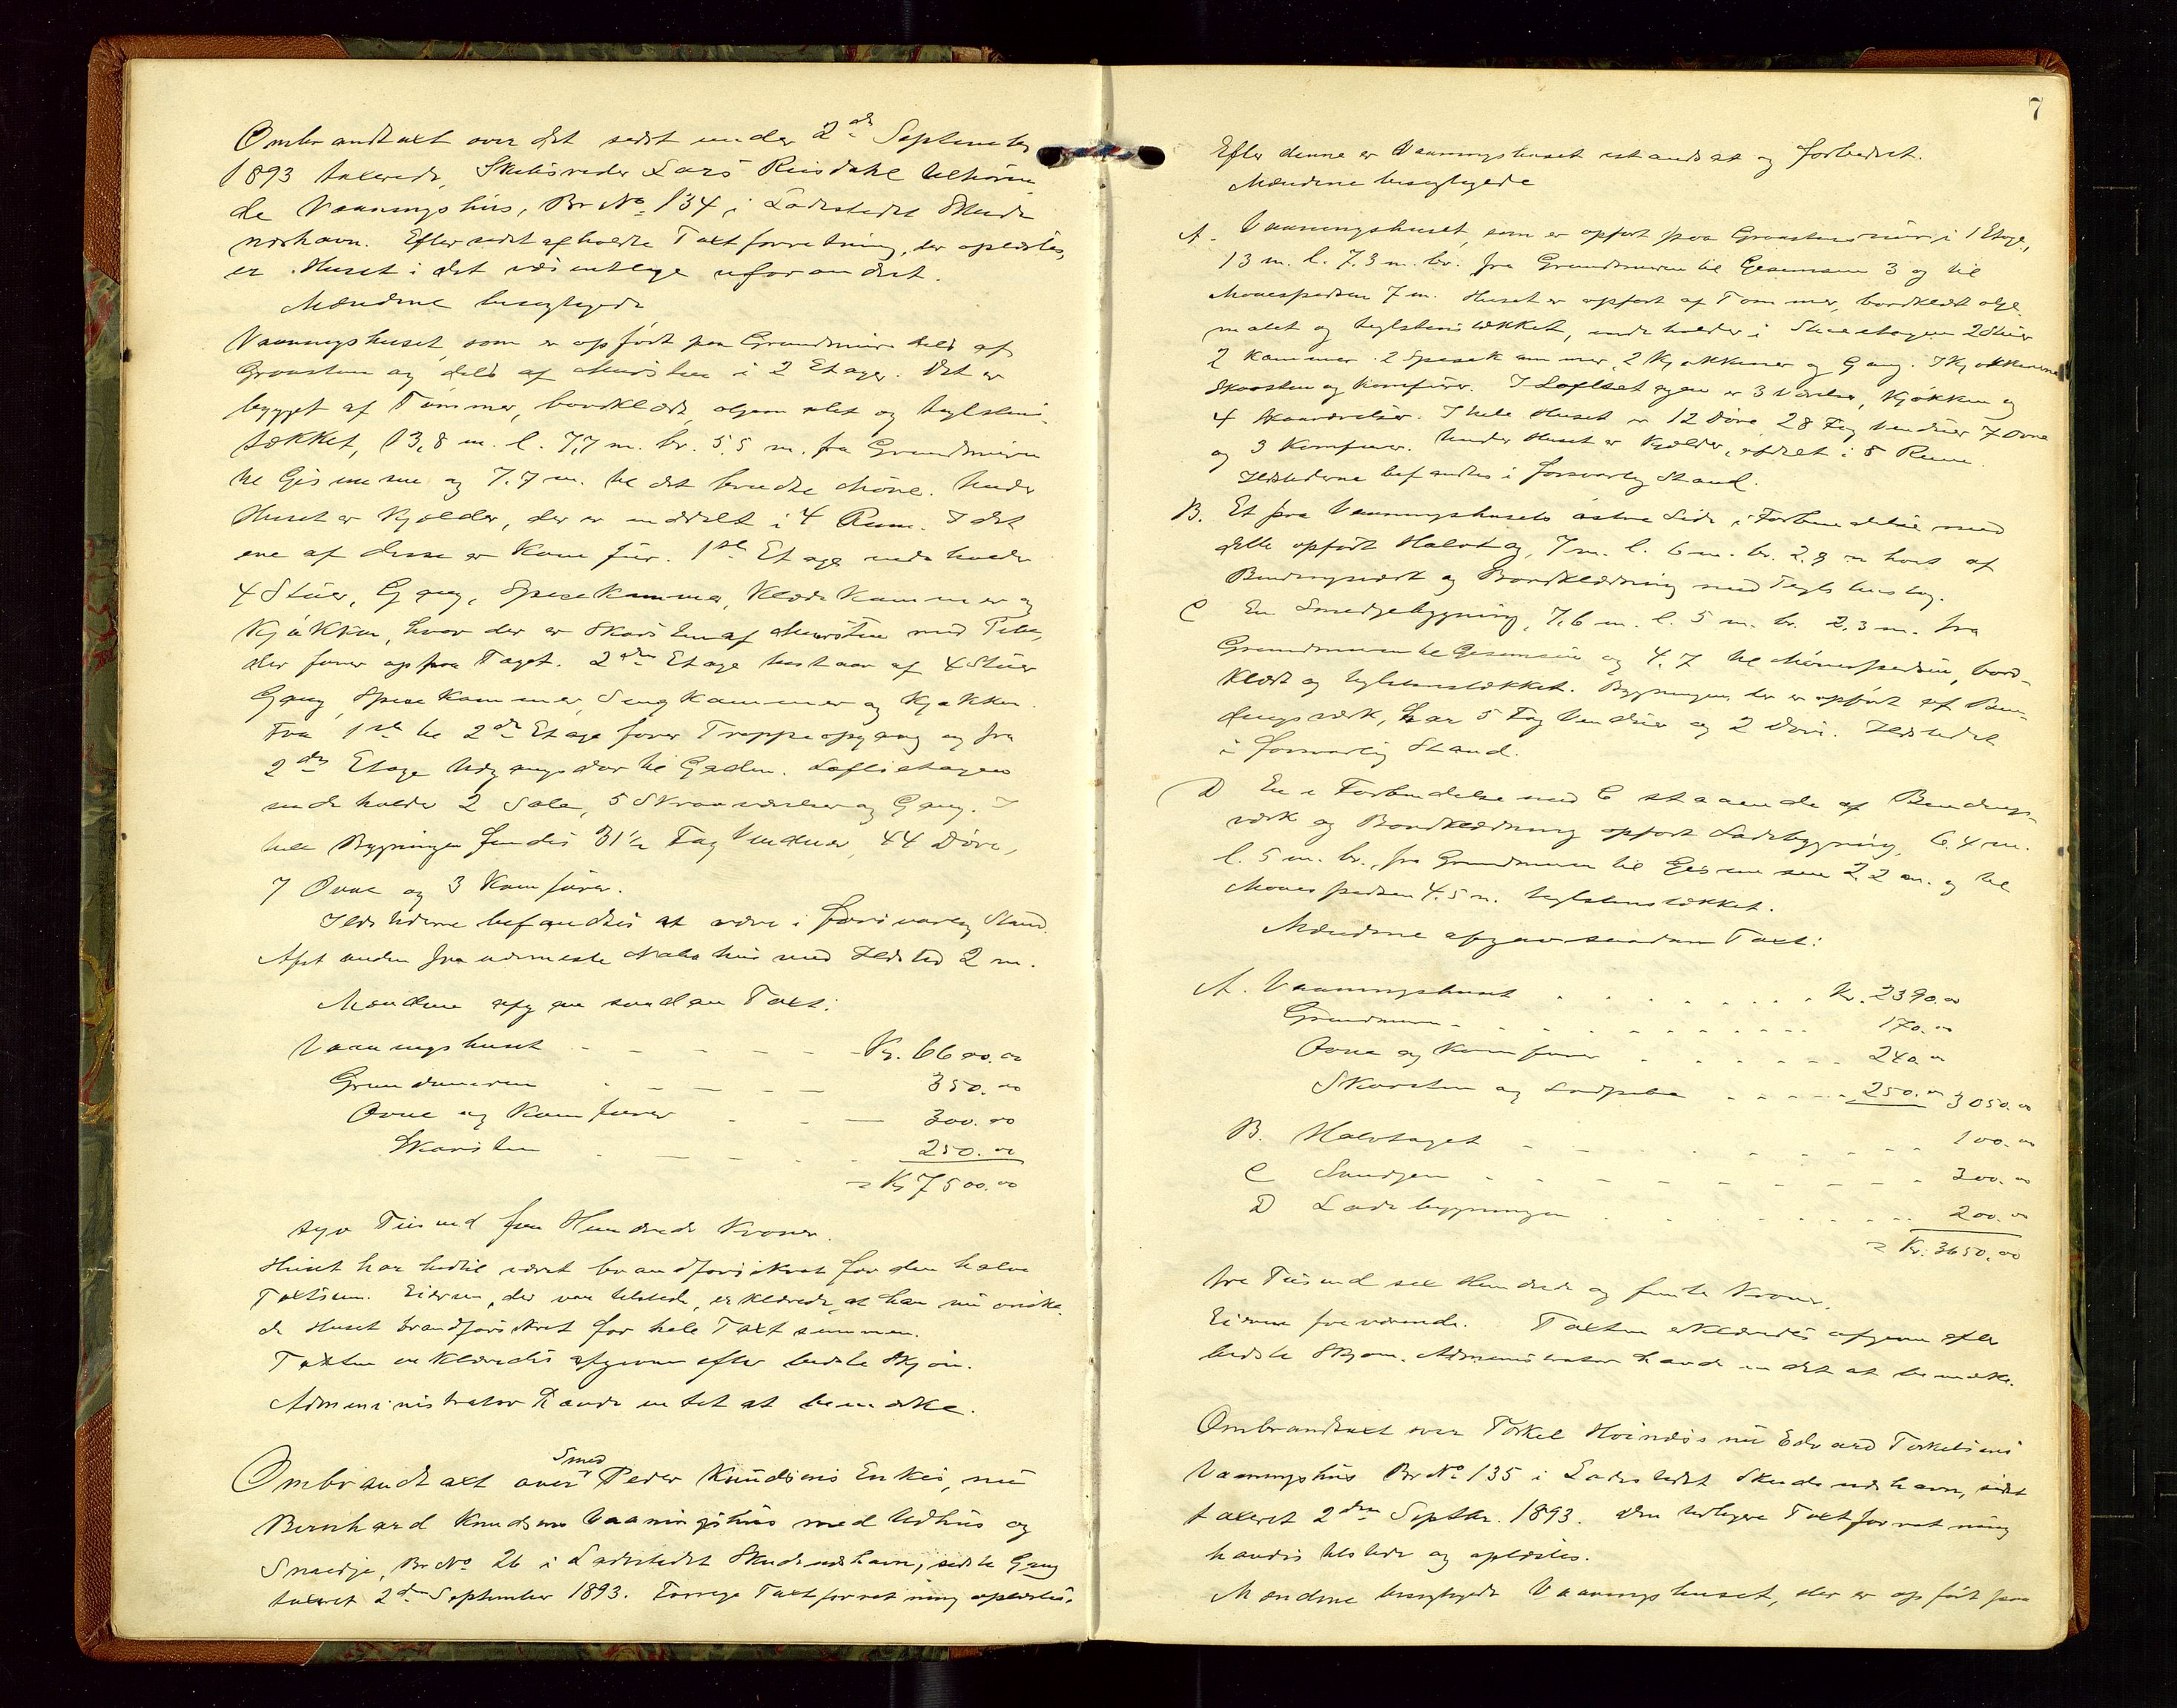 Ombrandtaxt over det sidst under 2den September
1893 taxerede, Skibsreder Lars Risdahl tilhøren
de Vaaningshus, Br No 134 i Ladestedet Skude
neshavn. Efter sidst afholdte Taxtforretning, der oplæstes,
er Huset i det væsentlige uforandret.
Mændene besigtigede
Vaaningshuset, som er opført paa Grundmur dels af
Graasten og dels af Mursten i 2 Etager. Det er
bygget af Tømmer, bordklædt, oljemalet og teglsteins
tækket, 13,8 m. l. 7,7 m. br. 5.5 m. fra Grundmuren
til Gesimsen og 7.7 m. til det brudte Møne. Under
Huset er Kjælder, der er inddelt i 4 Rum. I det
ene af disse er Komfur. 1ste Etage indeholder
4 Stuer, Gang, Spisekammer, Klædekammer og
Kjøkken, hvor der er Skorsten af Mursten med Pibe,
der fører op fra Taget. 2den Etage bestaar af 4 Stuer
Gang, Spisekammer, Sengkammer og Kjøkken.
Fra 1ste til 2den Etage fører Trappeopgang og fra
2den Etage Udgangsdør til Gaden. Loftsetagen
indeholder 2 Sale, 5 Skraaværelser og Gang. I
hele Bygningen findes 31½ Fag Vinduer, 44 Døre,
7 Ovne og 3 Komfurer.
Ildstederne befandtes at være i forsvarlig Stand.
Afstanden fra nærmeste Nabohus med Ildsted 2 m.
Mændene afgav saadan Taxt:
Vaaningshuset - - - - - - Kr. 6600.00
Grundmuren - - - - - 350.00
Ovne og Komfurer - - - 300.00
Skorsten - - - - - 250.00
= Kr 7500.00
syv Tusind fem Hundrede Kroner.
Huset har hidtil været brandforsikret for den halve
Taxtsum. Eieren, der var tilstede, erklærede, at han nu ønske
de Huset brandforsikret for hele Taxtsummen.
Taxten erklæredes afgiven efter bedste Skjøn.
Administrator havde intet at bemærke.
Ombrandtaxt over Smed Peder Knudsens Enkes, nu
Bernhard Knudsens Vaaningshus med Udhus og
Smedje, Br No 26 i Ladestedet Skudeneshavn, sidste Gang
taxeret 2den September 1893. Forrige Taxtforretning oplæstes.
7
Efter denne er Vaaningshuset istandsat og forbedret.
Mændene besigtigede
A. Vaaningshuset, som er opført paa Graastensmur i 1 Etage,
13 m. l. 7.3 m. br. fra Grundmuren til Gesimsen 3 og til
Mønespidsen 7 m. Huset er opført af Tømmer, bordklædt olje
malet og teglstenstækket, indeholder i Stueetagen 2 Stuer
2 Kammer 2 Spisekammer, 2 Kjøkkener og Gang. I Kjøkkenerne
Skorsten og Komfurer. I Loftsetagen er 3 Værelser, Kjøkken og
4 Skraaværelser. I hele Huset er 12 Døre 28 Fag Vinduer 7 Ovne
og 3 Komfurer. Under Huset er Kjælder, afdelt i 5 Rum.
Ildstederne befandtes i forsvarlig Stand.
B. Et fra Vaaningshusets østre Side i Forbindelse med
dette opført Halvtag, 7 m. l. 6 m. br. 2.8 m høit af
Bindingsværk og Bordklædning med Teglstenstag.
C En Smedjebygning, 7,6 m. l. 5 m. br. 2.3 m. fra
Grundmuren til Gesimsen og 4.7 til Mønespidsen, bord-
klædt og teglstenstækket. Bygningen, der er opført af Bin-
dingsværk, har 5 Fag Vinduer og 2 Døre. Ildstedet
i forsvarlig Stand.
D En i Forbindelse med C staaende af Bindings-
værk og Bordklædning opført Ladebygning, 6.4 m.
l. 5 m. br., fra Grundmuren til Gesimsen 2.2 m. og til
Mønespidsen 4.5 m. teglstenstækket.
Mændene afgav saadan Taxt:
A. Vaaningshuset . . . . . . . . Kr. 2390.00
Grundmuren - - - - - - 170.00
Ovne og Komfurer - - - - - 240.00
Skorsten og Lodpibe - - - - - 250.00 3050.00
B. Halvtaget - - - - - - - 100.00
C Smedjen - - - - - - - 300.00
D Ladebygningen - - - - - - 200.00
= Kr. 3650.00
tre Tusind sex Hundrede og femti Kroner.
Eieren fraværende. Taxten erklæredes afgiven efter
bedste Skjøn. Administrator havde intet at bemærke.
Ombrandtaxt over Torkel Hoinæs's nu Edvard Torkelsens
Vaaningshus Br No 135 i Ladestedet Skudeneshavn, sidst
taxeret 2den Septbr. 1893. Den tidligere Taxtforretning
havdes tilstede og oplæstes.
Mændene besigtigede Vaaningshuset, der er opført paa